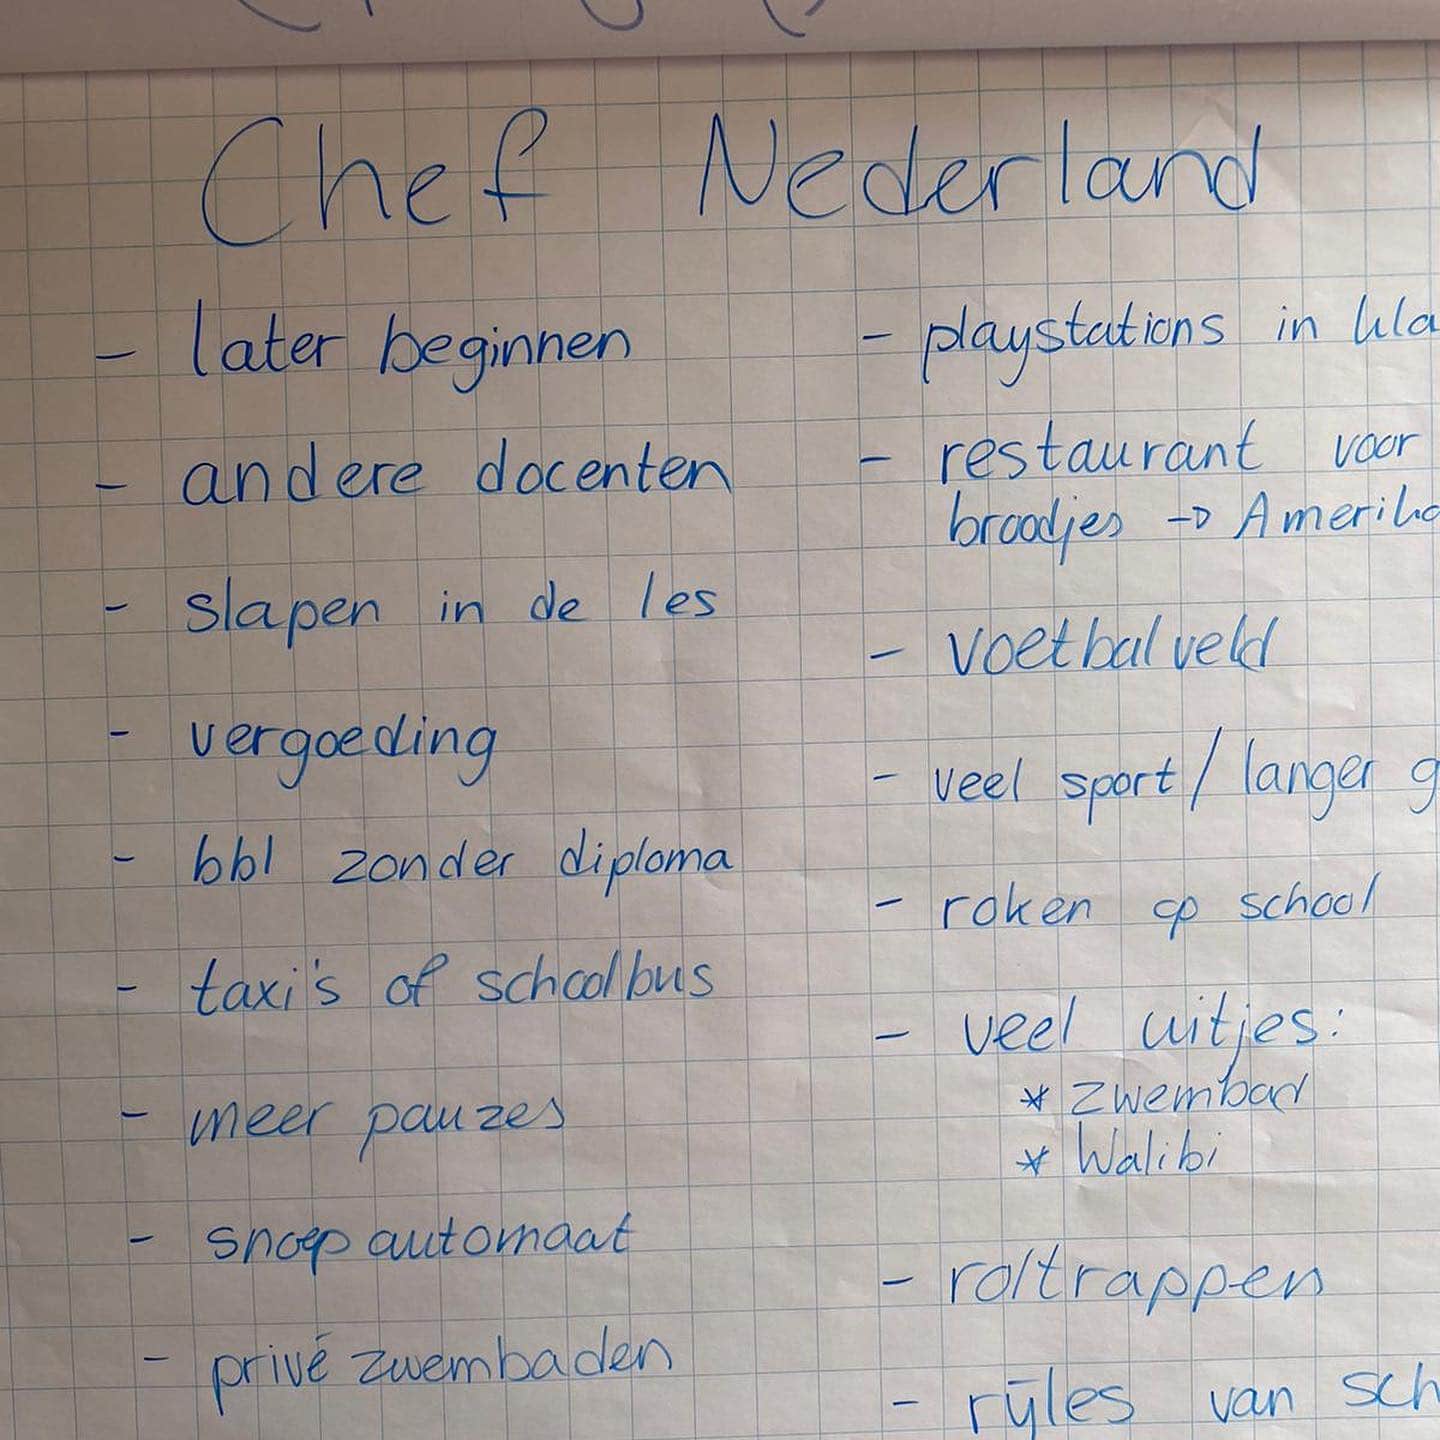 Chef Nederland
- later beginnen
- andere docenten
- slapen in de les
- vergoeding
- bbl zonder diploma
- taxi's of schoolbus
- meer pauzes
- snoepautomaat
- privé zwembaden
- playstations in kla
- restaurant voor
broodjes → Amerika
- voetbalveld
- veel sport / langer g
- roken op school
- veel uitjes:
* zwembad
* Walibi
- roltrappen
- rijles van sch